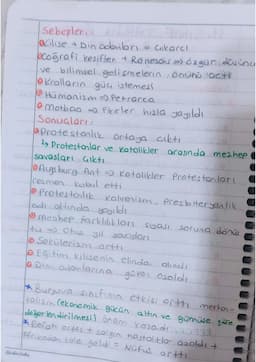 Sebepler:
Kilise + Din adamları ⇒ çıkarcı
Coğrafi keşifler + Rönesans ⇒ özgür düşünce
ve bilimsel gelişmelerin önünü açtı
Kralların güç istemesi
Hümanizm ⇒ Petrarca
Matbaa ⇒ Fikirler hızla yayıldı
Sonuçları:
Protestanlık ortaya çıktı
↳ Protestanlar ve Katolikler arasında mezhep
savaşları çıktı
Augsburg Ant ⇒ Katolikler Protestanları
resmen kabul etti
Protestanlık Kalvenizm, Presbiteryenlik
adı altında yayıldı
mezhep farklılıkları siyasi soruna dönüş
tü ⇒ Otuz yıl savaşları
Sekülerizm arttı
Eğitim kilisenin elinden alındı
Din adamlarına güven azaldı
* Burjuva sınıfının etkisi arttı merkan-
talizm (ekonomik gücün altın ve gümüşe göre
değerlendirilmesi) önem kazandı
* Refah arttı + salgın hastalık azaldı +
göl geldi = Nüfus arttı